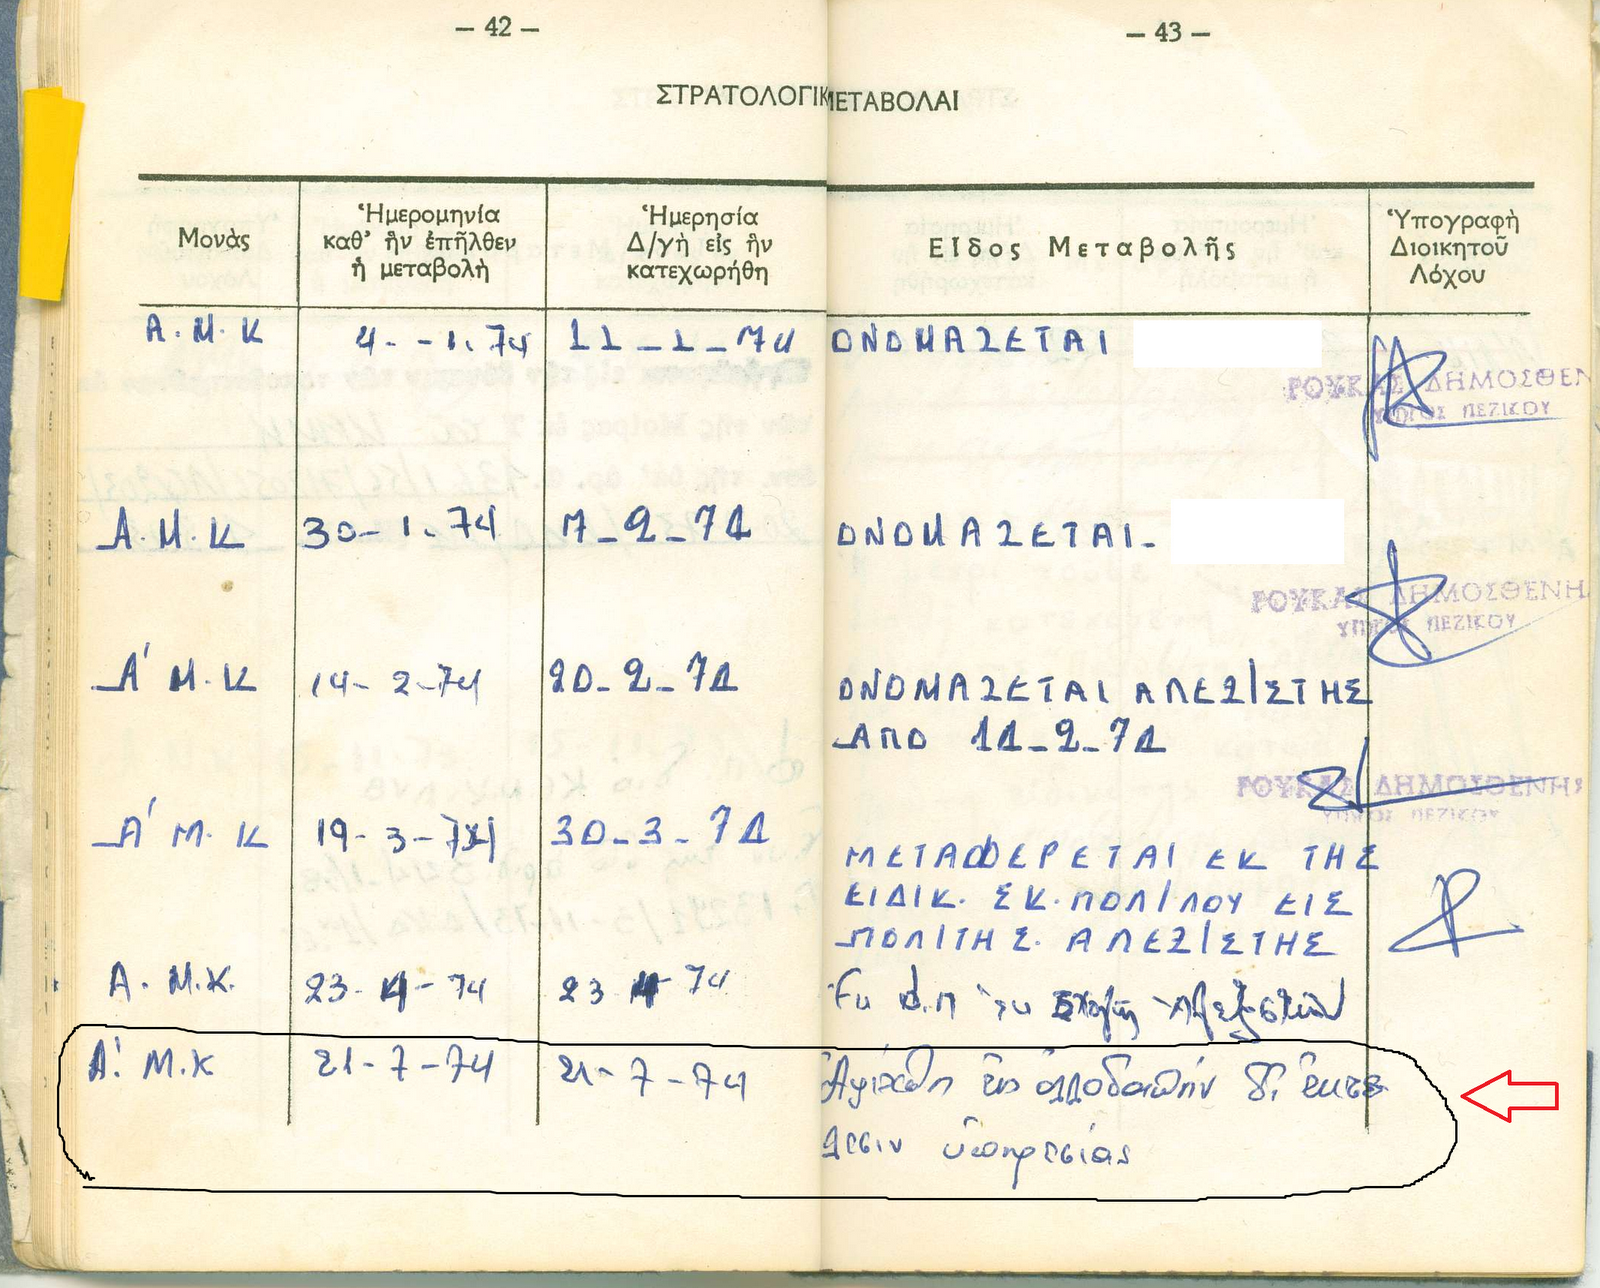 — 42 —
— 43 —
ΣΤΡΑΤΟΛΟΓΙΚ ΜΕΤΑΒΟΛΑΙ
Μονὰς
Ἡμερομηνία
καθ' ἣν ἐπῆλθεν
ἡ μεταβολὴ
Ἡμερησία
Δ/γὴ εἰς ἣν
κατεχωρήθη
Εἶδος Μεταβολῆς
Ὑπογραφὴ
Διοικητοῦ
Λόχου
Α.Μ.Κ 4-1.74 11-1-74 ΟΝΟΜΑΖΕΤΑΙ
ΡΟΥΚΑΣ ΔΗΜΟΣΘΕΝ
ΥΠ/ΓΟΣ ΠΕΖΙΚΟΥ
Α.Μ.Κ 30-1.74 7-2-74 ΟΝΟΜΑΖΕΤΑΙ-
ΡΟΥΚΑΣ ΔΗΜΟΣΘΕΝΗ
ΥΠ/ΓΟΣ ΠΕΖΙΚΟΥ
Α' Μ.Κ 14-2-74 20-2-74 ΟΝΟΜΑΖΕΤΑΙ ΑΛΕΞ/ΣΤΗΣ
ΑΠΟ 14-2-74
ΡΟΥΚΑΣ ΔΗΜΟΣΘΕΝΗΣ
ΥΠ/ΓΟΣ ΠΕΖΙΚΟΥ
Α' Μ.Κ 19-3-74 30-3-74 ΜΕΤΑΦΕΡΕΤΑΙ ΕΚ ΤΗΣ
ΕΙΔΙΚ. ΣΚ. ΠΟΛ/ΛΟΥ ΕΙΣ
ΠΟΛ/ΤΗΣ. ΑΛΕΞ/ΣΤΗΣ
Α.Μ.Κ. 23-4-74 23 4 74
Α'. Μ.Κ 21-7-74 21-7-74 Ἀφίχθη εἰς ἀλλοδαπὴν δι' ἐκτέ
λεσιν ὑπηρεσίας